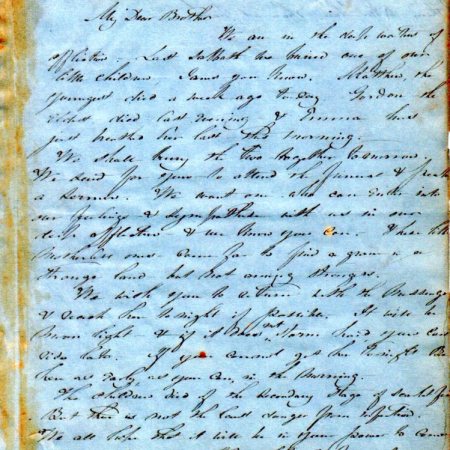 My Dear Brother
We are in the deep waters of
affliction. Last Sabbath we buried one of our
little children James you know. Matthew, the
youngest died a week ago to day Gordon the
eldest died last evening & Emma has
just breathed her last this morning.
We shall bury the two together tomorrow.
We send for you to attend the funeral & preach
a sermon. We want one who can enter into
our feelings & sympathise with us in our
deep affliction & we know you can. These little
Motherless ones came far to find a grave in a
strange land but not among strangers.
We wish you to return with the Messenger
& reach here to night if possible. It will be
Moon light & if it does n't storm hind your can
ride late. If you cannot get here to night
then as early as you can, in the Morning.
The children died of the secondary stage of scarlet fever
But there is not the least danger from infection.
We all hope that it will be in your power to come